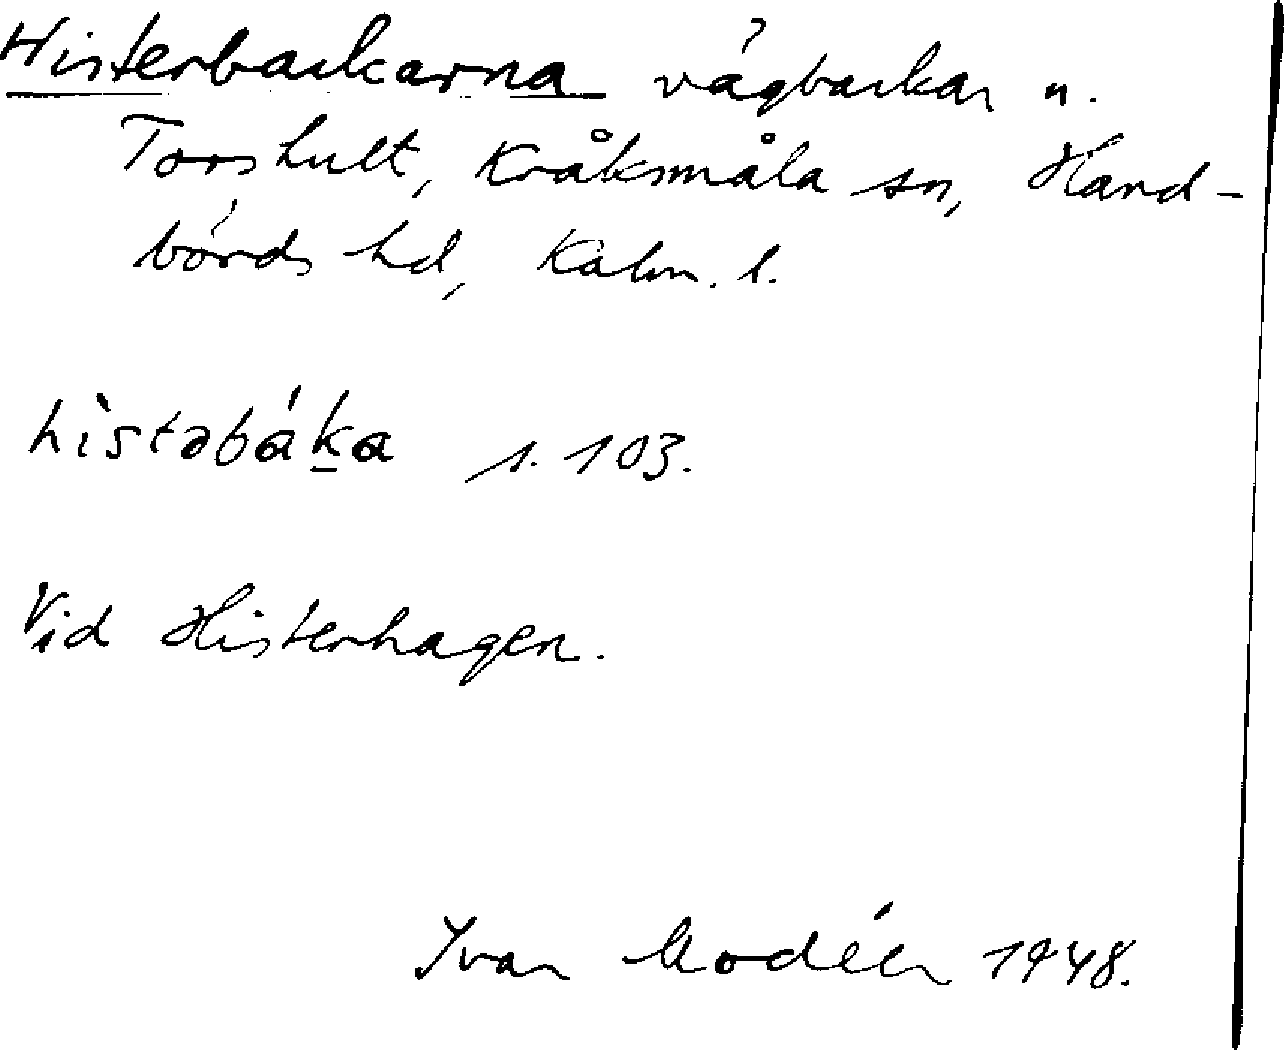 Histerbackarna vägbackar u.
Torshult, Kråksmåla sn, Hand-
börds hd, Kalm. l.
hìstəbák̠a s. 103.
Vid Histerhagen.
Ivar Modéer 1948.